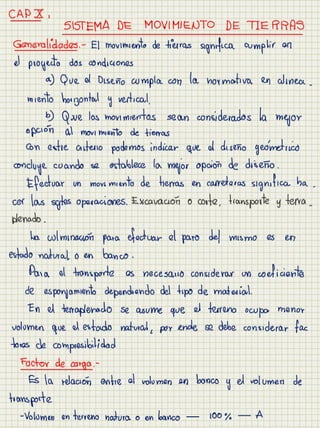 CAP X.
SISTEMA DE MOVIMIENTO DE TIERRAS
Generalidades.- El movimiento de tierras significa cumplir en
el proyecto dos condiciones
a) Que el Diseño cumpla con la normativa en alinea-
miento horizontal y vertical.
b) Que los movimientos sean considerados la mejor
opción al movimiento de tierras
Con este criterio podemos indicar que el diseño geométrico
concluye cuando se establece la mejor opción de diseño.
Efectuar un movimiento de tierras en carreteras significa ha-
cer las sgtes operaciones. Excavación o corte, transporte y terra-
plenado.
La culminación para efectuar el paro del mismo es en
estado natural o en banco.
Para el transporte es necesario considerar un coeficiente
de esponjamiento dependiendo del tipo de material.
En el terraplenado se asume que el terreno ocupa menor
volumen que el estado natural, por ende se debe considerar fac
tores de compresibilidad
Factor de carga.-
Es la relación entre el volumen en banco y el volumen de
transporte
-Volumen en terreno natura o en banco — 100% — A